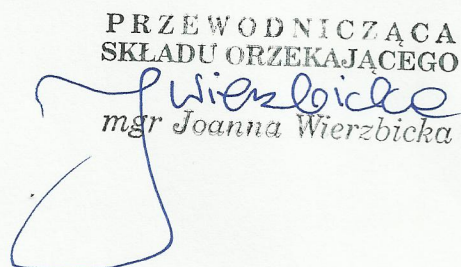 PRZEWODNICZĄCA
SKŁADU ORZEKAJĄCEGO
JWierzbicka
mgr Joanna Wierzbicka